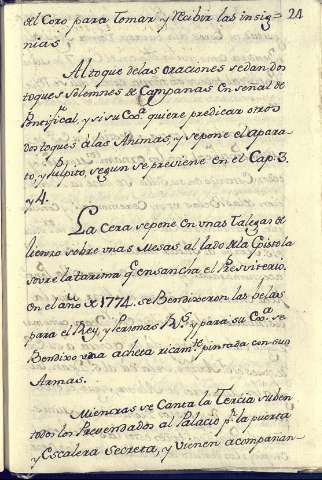 24
del Coro para Tomar y recibir las insig=
nias
Al toque de las oraciones se dan dos
toques Solemnes de Campanas en señal de
Pontifical, y si su Exª quiere predicar otros
dos toques á las Animas, y se pone el apara-
to, y Pulpito, segun se previene en el Cap. 3.
y 4.
La Cera se pone en unas Talegas de
lienzo sobre unas Mesas al lado de la Epistola
sovre la tarima q ensancha el Presviterio.
En el año de 1774. se Bendixeron las belas
para el Rey, y Personas Rs. y para su Exª. se
Bendixo una acheta ricamte. pintada con sus
Armas.
Mientras se Canta la Tercia suben
todos los Prevendados al Palacio pr. la puerta
y Escalera secreta, y vienen acompañan-